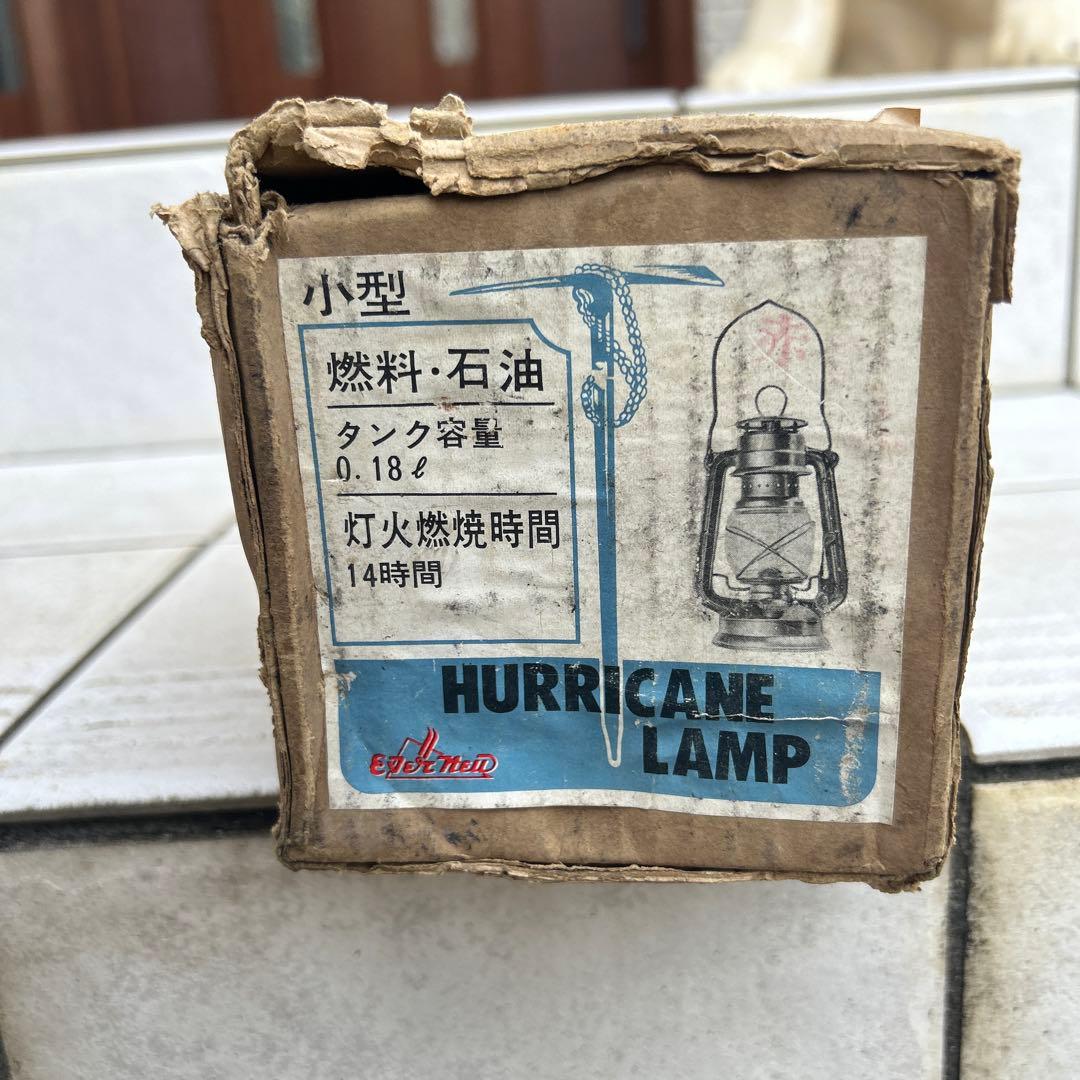 小型
燃料・石油
タンク容量
0.18ℓ
灯火燃焼時間
14時間
赤
HURRICANE
LAMP
EVERNEW